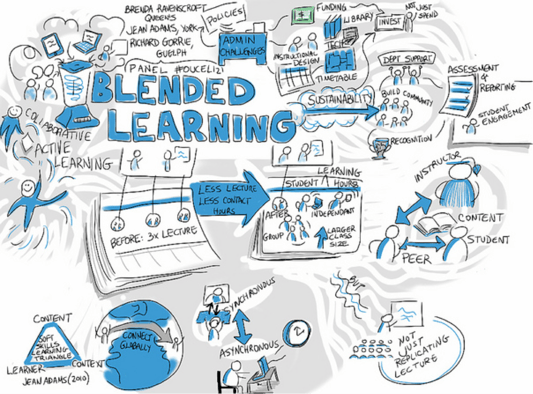 BRENDA RAVENSCROFT
QUEENS
JEAN ADAMS, YORK
RICHARD GORRIE,
GUELPH
PANEL #OUCEL121
BLENDED
LEARNING
POLICIES
ADMIN
CHALLENGES
FUNDING
LIBRARY
TECH
INSTRUCTIONAL
DESIGN
TIMETABLE
INVEST
NOT JUST
SPEND
DEPT SUPPORT
SUSTAINABILITY
BUILD COMMUNITY
RECOGNITION
ASSESSMENT
+
REPORTING
STUDENT
ENGAGEMENT
COLLABORATIVE
ACTIVE
LEARNING
BEFORE: 3x LECTURE
LESS LECTURE
LESS CONTACT
HOURS
LEARNING
STUDENT HOURS
AFTER
INDEPENDANT
GROUP
LARGER
CLASS
SIZE
INSTRUCTOR
CONTENT
STUDENT
PEER
CONTENT
SOFT
SKILLS
LEARNING
TRIANGLE
LEARNER
CONTEXT
JEAN ADAMS (2010)
CONNECT
GLOBALLY
SYNCHRONOUS
ASYNCHRONOUS
NOT
JUST
REPLICATING
LECTURE